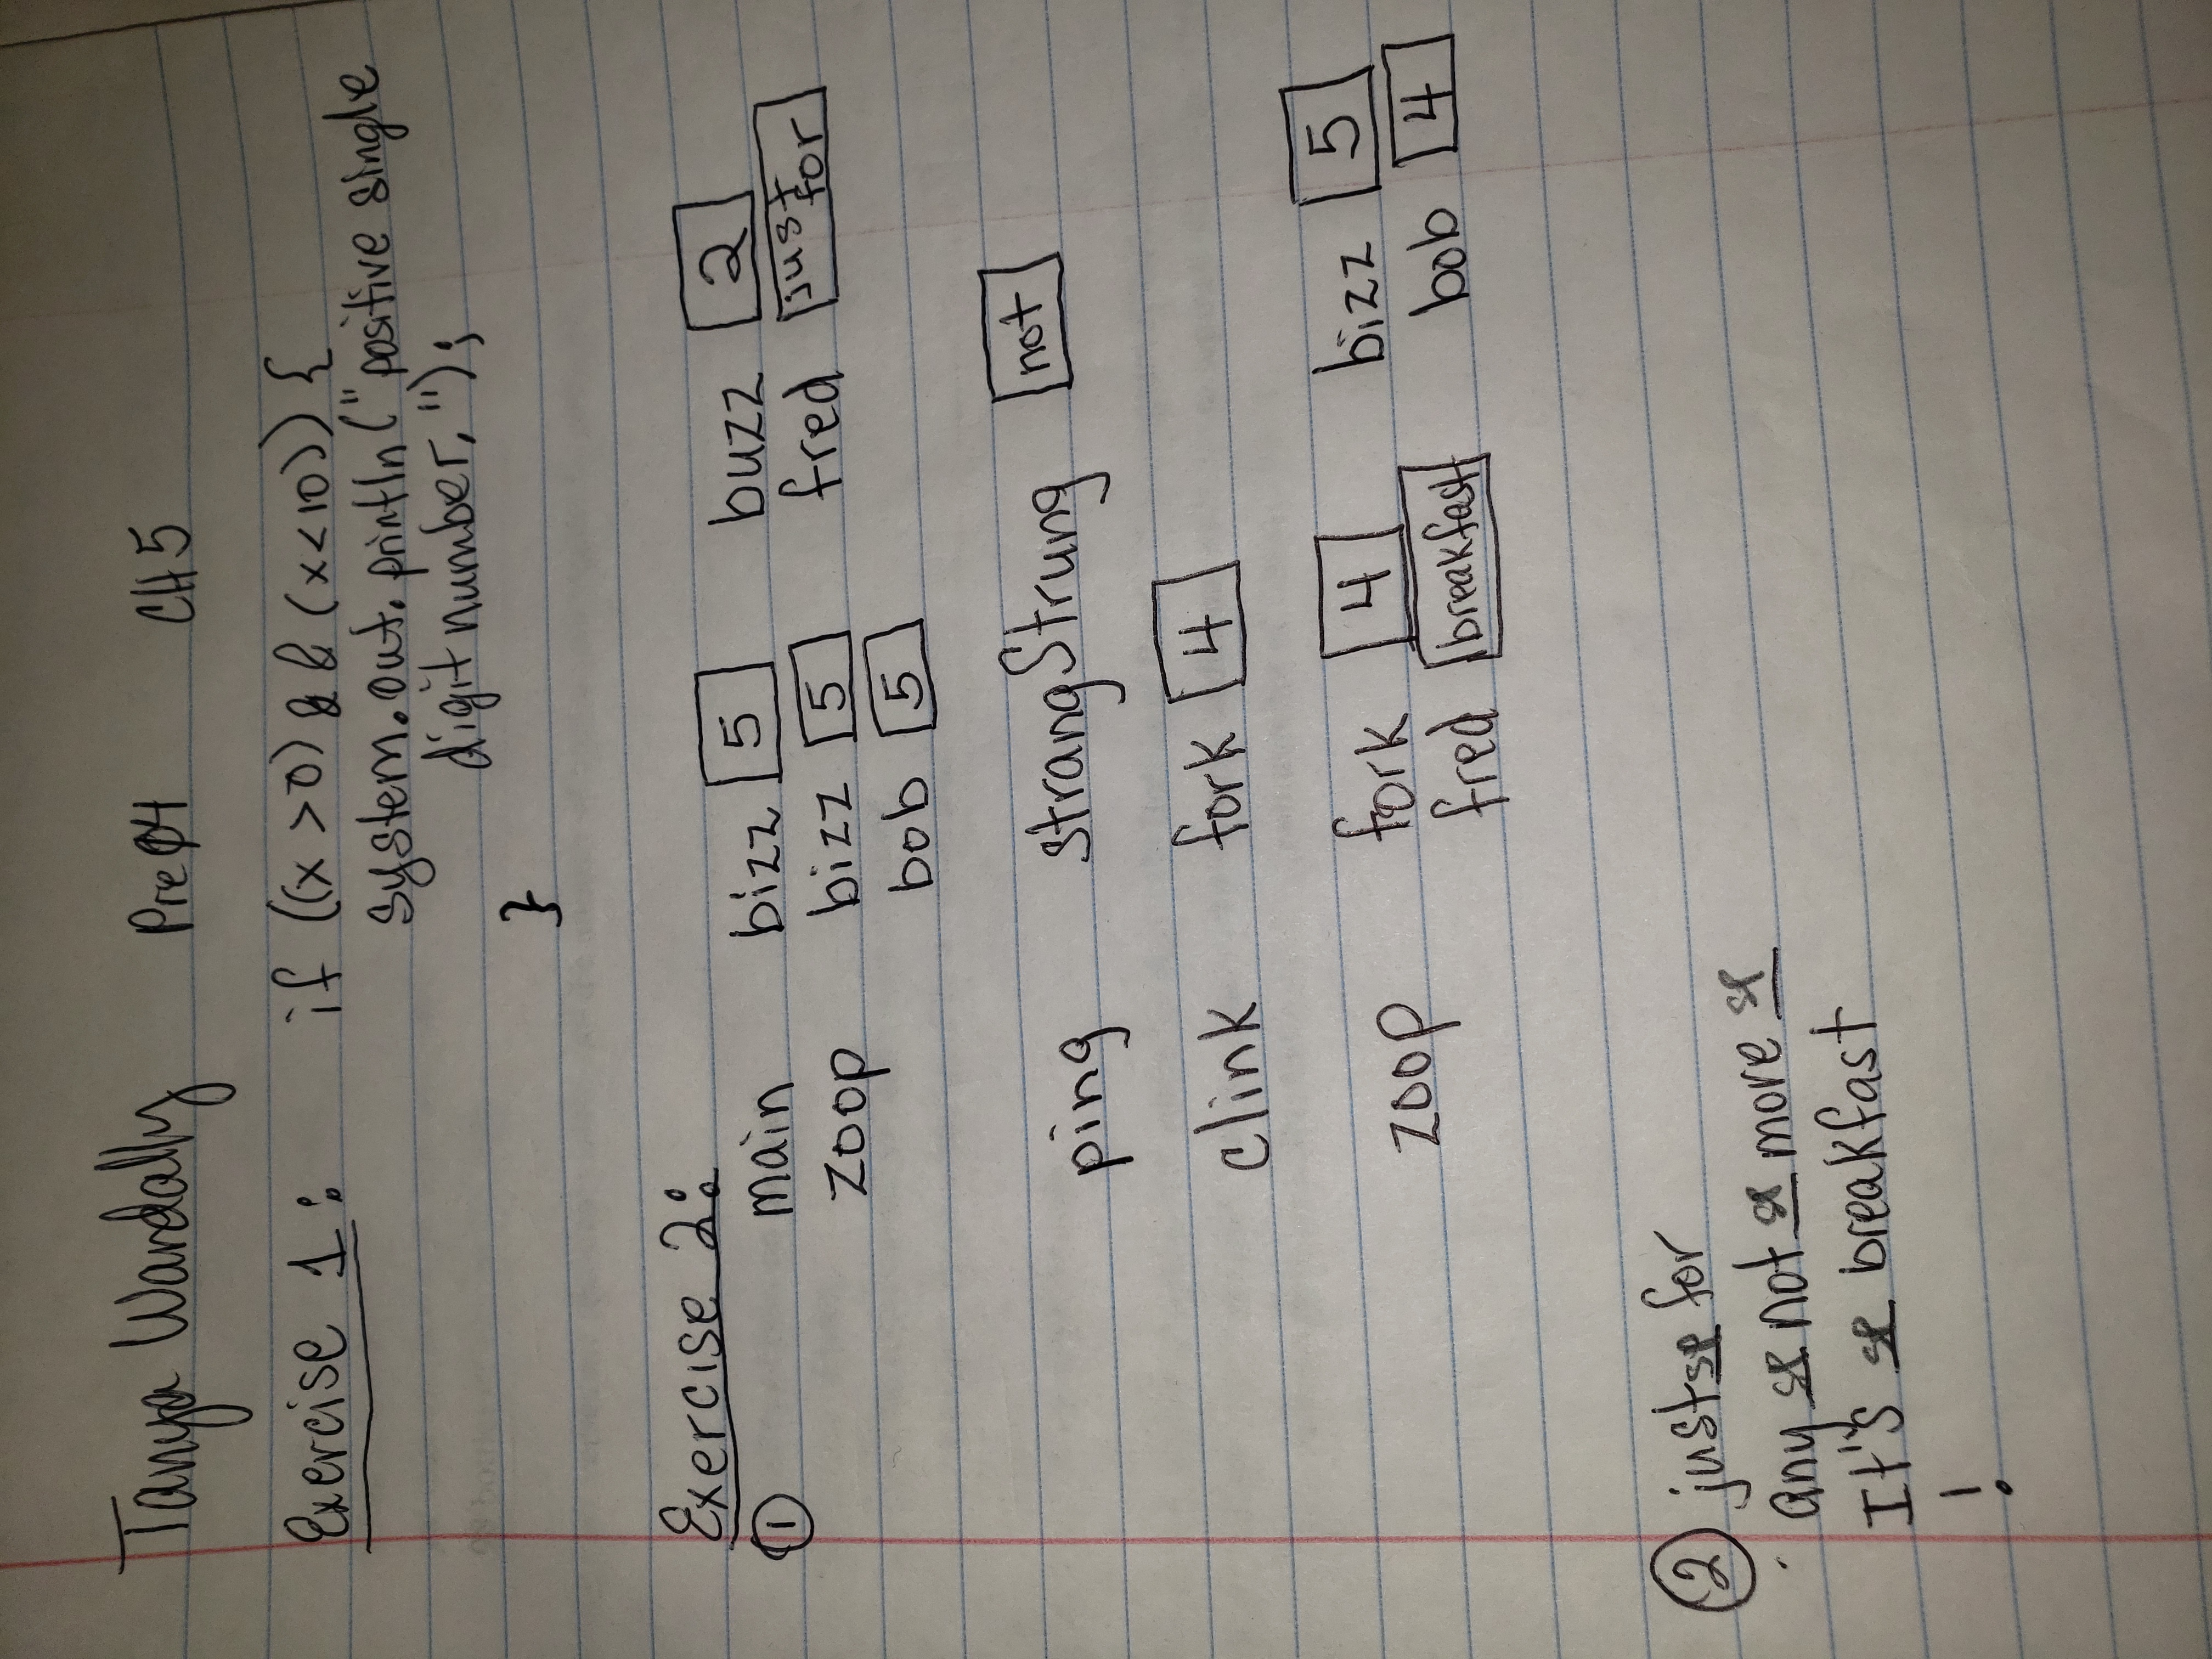 Tanya Wardally Pre04 CH 5
Exercise 1: if ((x > 0) && (x < 10)) {
system.out.println("positive single
digit number.");
}
Exercise 2:
① main bizz 5 buzz 2
zoop bizz 5 fred just for
bob 5
ping strangStrung not
clink fork 4
zoop fork 4 bizz 5
fred breakfast bob 4
② just sp for
any sp not sp more sp
It's sp breakfast
!